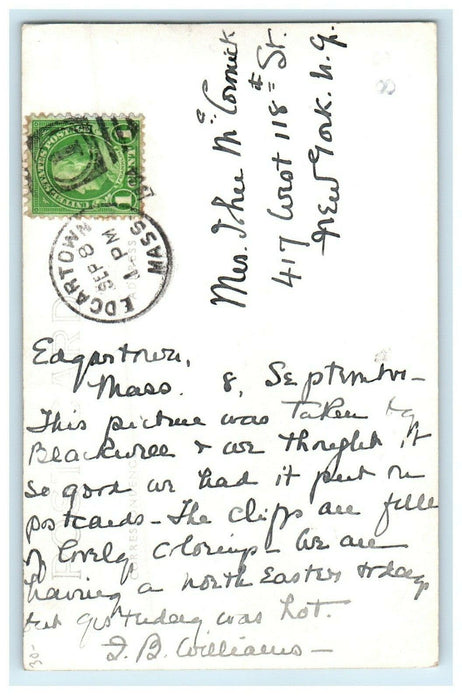 Mrs. Jhee McCormick
417 West 118th St.
New York. N.Y.
EDGARTOWN
SEP 8
1 PM
MASS
1
Edgartown,
Mass. 8, September-
This picture was taken by
Blackwell & we thought it
so good we had it put on
postcards - The cliffs are full
of lovely colorings - We are
having a north Easter today
but yesterday was hot.
I. B. Williams -
30-